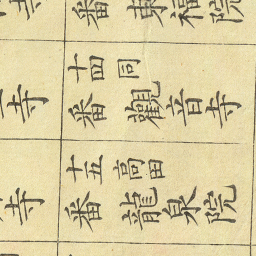 番 東福院
十四 同
番 觀音寺
十五 高田
番 龍泉院
寺
寺